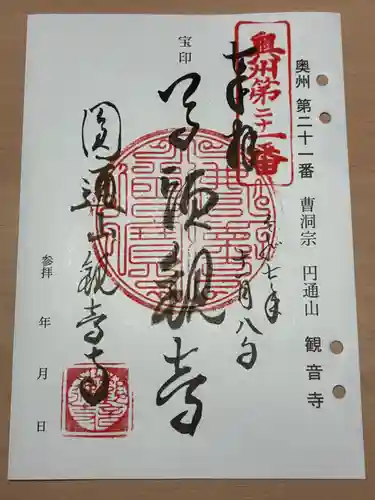 奥州 第二十一番 曹洞宗 円通山 観音寺
奥州第二十一番
奉拝
令和七年
十一月八日
宝印
馬頭観音
圓通山観音寺
参拝 年 月 日